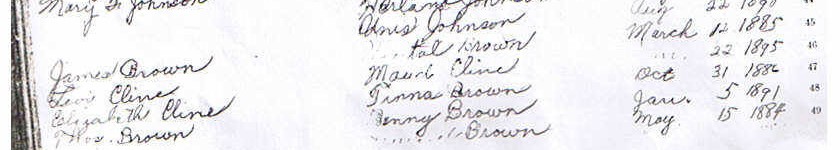 Mary F Johnson Harland Johnson Aug 22 1890 44
Anis Johnson March 12 1885 45
Brown 22 1895 46
James Brown Maud Cline Oct 31 1886 47
Levi Cline Tinna Brown Jan. 5 1891 48
Elizabeth Cline Benny Brown May 15 1884 49
Thos. Brown Brown